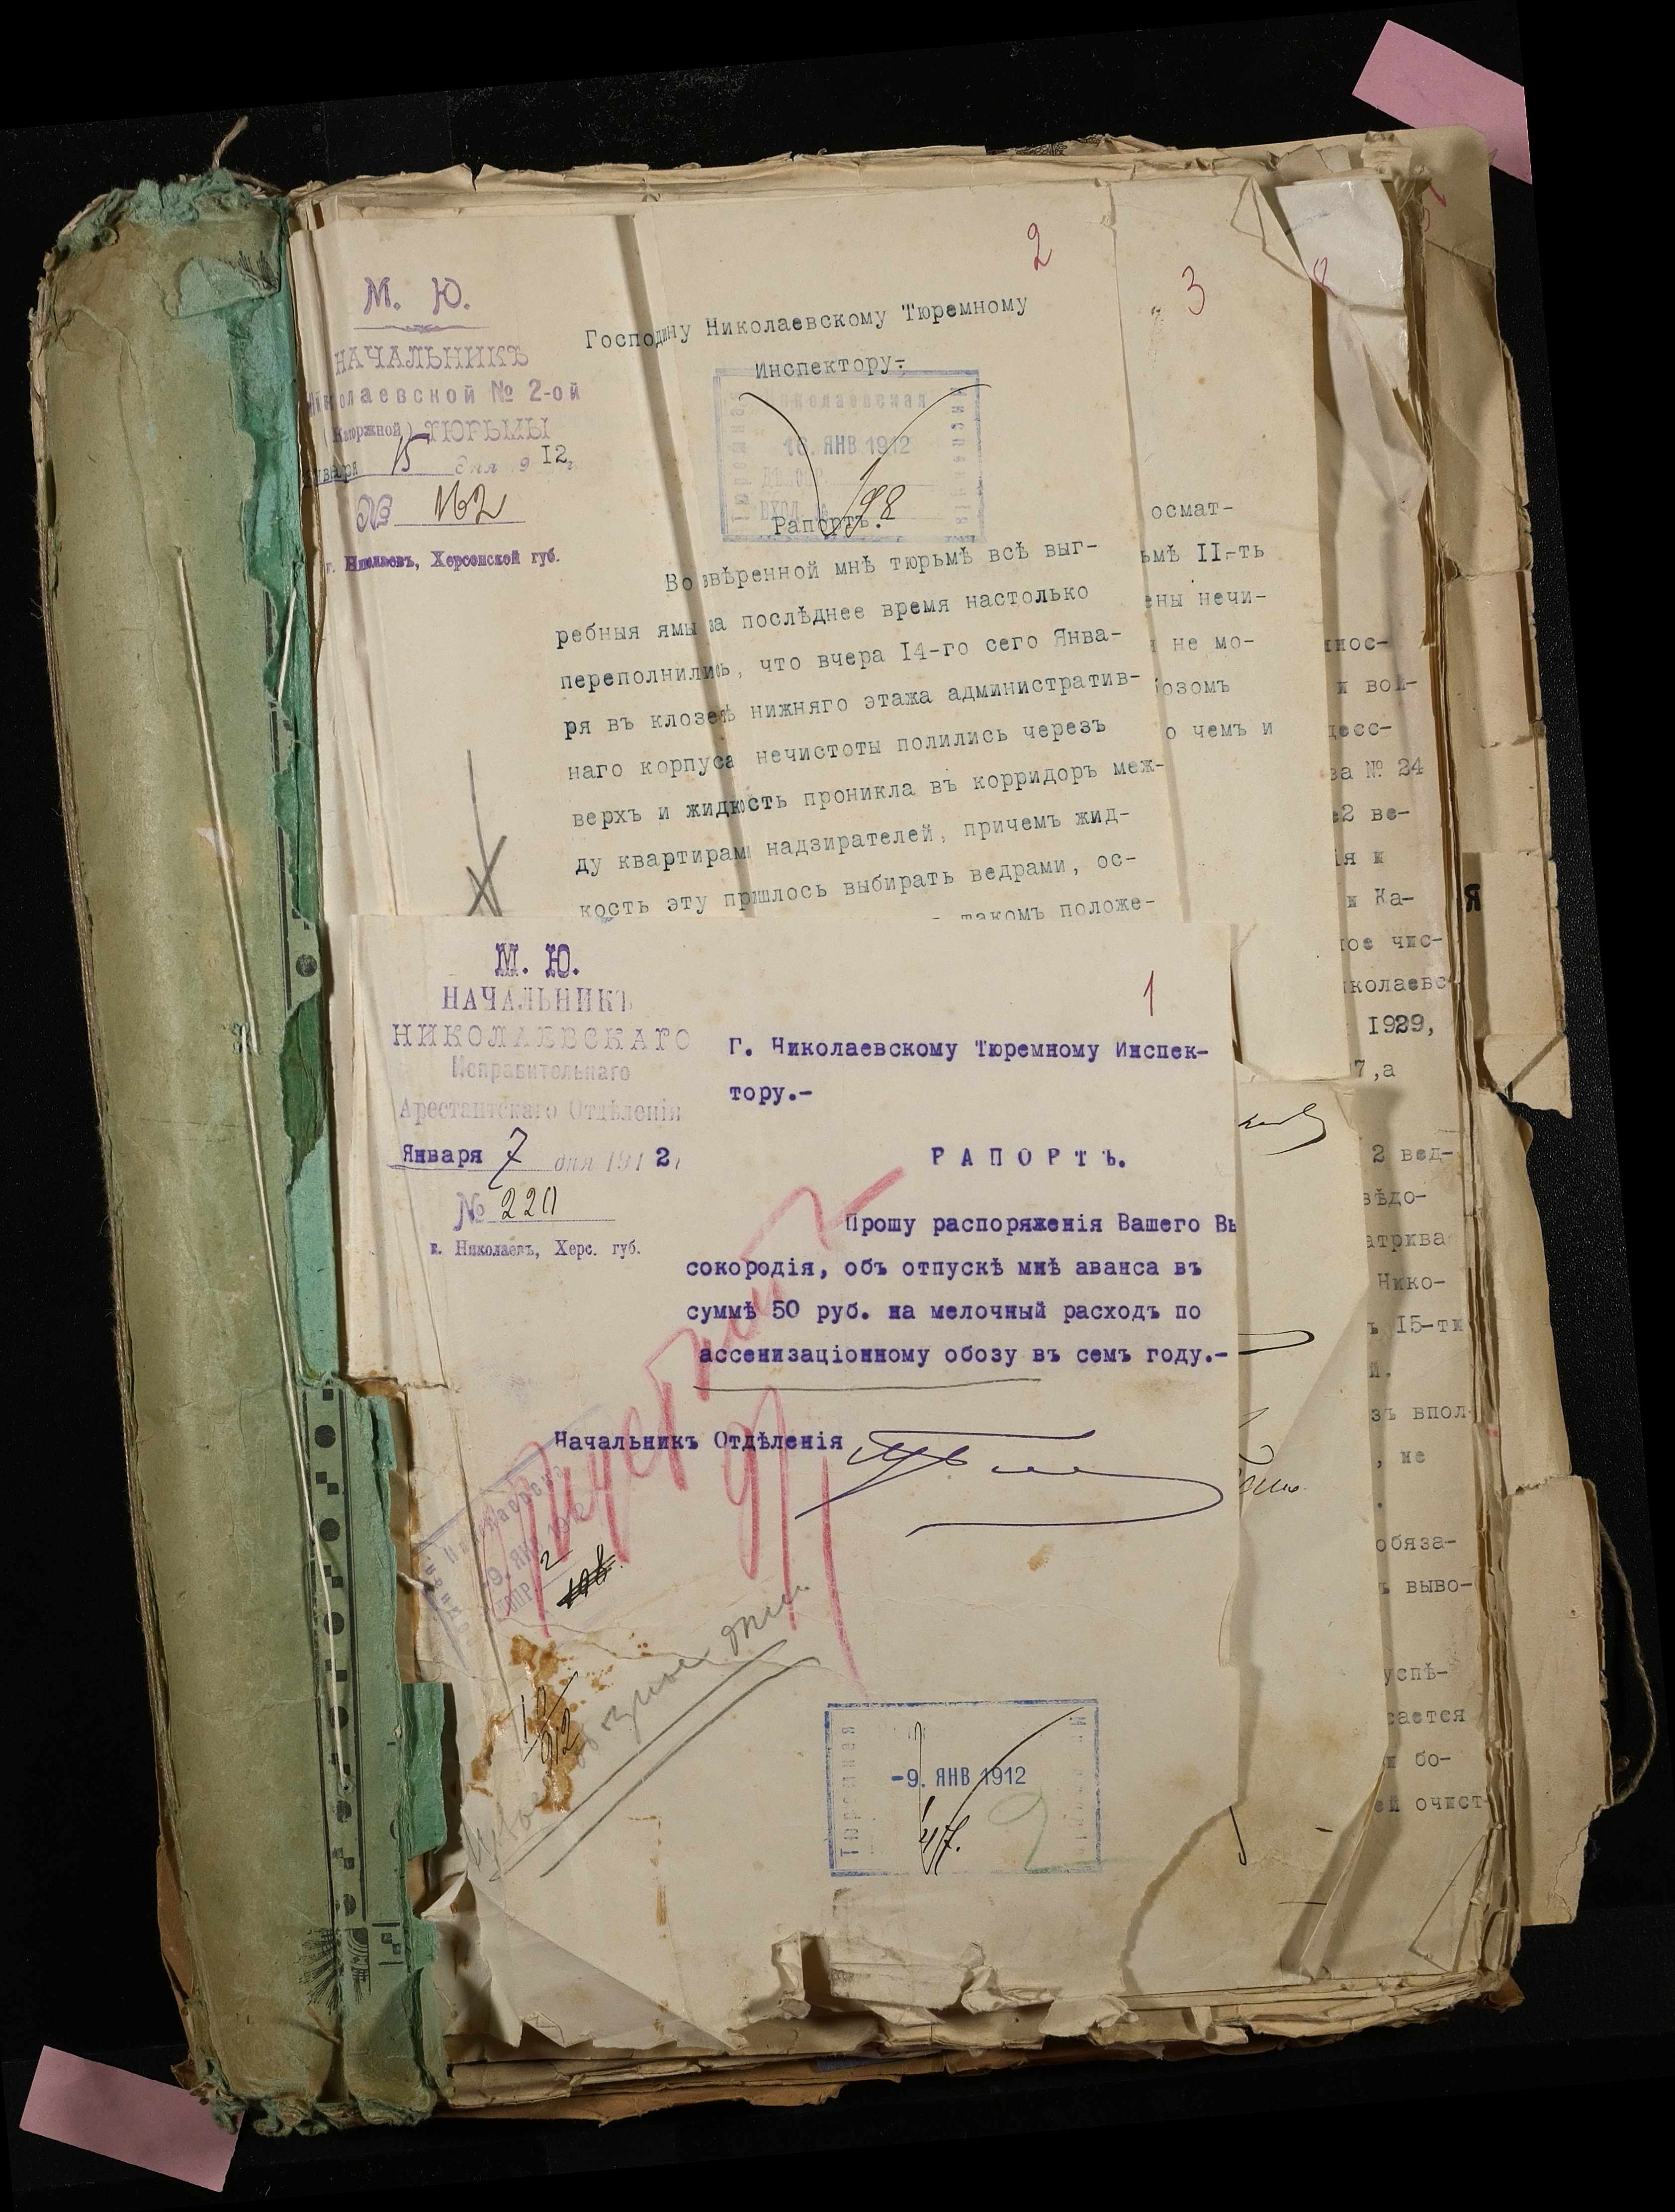 2
3
8
М. Ю.
НАЧАЛЬНИКЪ
Николаевской № 2-ой
(Каторжной) ТЮРЬМЫ
Января 15 дня 912г.
№ 162
г. Николаевъ, Херсонской губ.
Господину Николаевскому Тюремному
Инспектору-
Николаевская
Тюремная
Инспекція
16. ЯНВ 1912
ВХОД. №
198
Рапортъ.
Во ввѣренной мнѣ тюрьмѣ всѣ выг-
ребныя ямы за послѣднее время настолько
переполнились, что вчера 14-го сего Янва-
ря въ клозетѣ нижняго этажа административ-
наго корпуса нечистоты полились черезъ
верхъ и жидкость проникла въ корридоръ меж-
ду квартирами надзирателей, причемъ жид-
кость эту пришлось выбирать ведрами, ос-
такомъ положе-
осмат-
ьмѣ II-ть
ены нечи-
и не мо-
бозомъ
о чемъ и
нос-
и вой-
десс-
ва № 24
е2 ве-
ія и
и Ка-
ное чис-
иколаевс-
1929,
7,а
2 вед-
вѣдо-
атрива
Нико-
ъ 15-ти
й.
зъ впол-
, не
обяза-
ъ выво-
успѣ-
сается
и бо-
ей очист-
Я
М. Ю.
НАЧАЛЬНИКЪ
НИКОЛАЕВСКАГО
Исправительнаго
Арестантскаго Отдѣленія
Января 7 дня 1912г
№ 220
г. Николаевъ, Херс. губ.
1
Г. Николаевскому Тюремному Инспек-
тору.-
РАПОРТЪ.
Прошу распоряженія Вашего Вы
сокородія, объ отпускѣ мнѣ аванса въ
суммѣ 50 руб. на мелочный расходъ по
ассенизаціонному обозу въ семъ году.-
Начальникъ Отдѣленія
-9. ЯНВ 1912
2
Тюремная
-9. ЯНВ 1912
47.
2